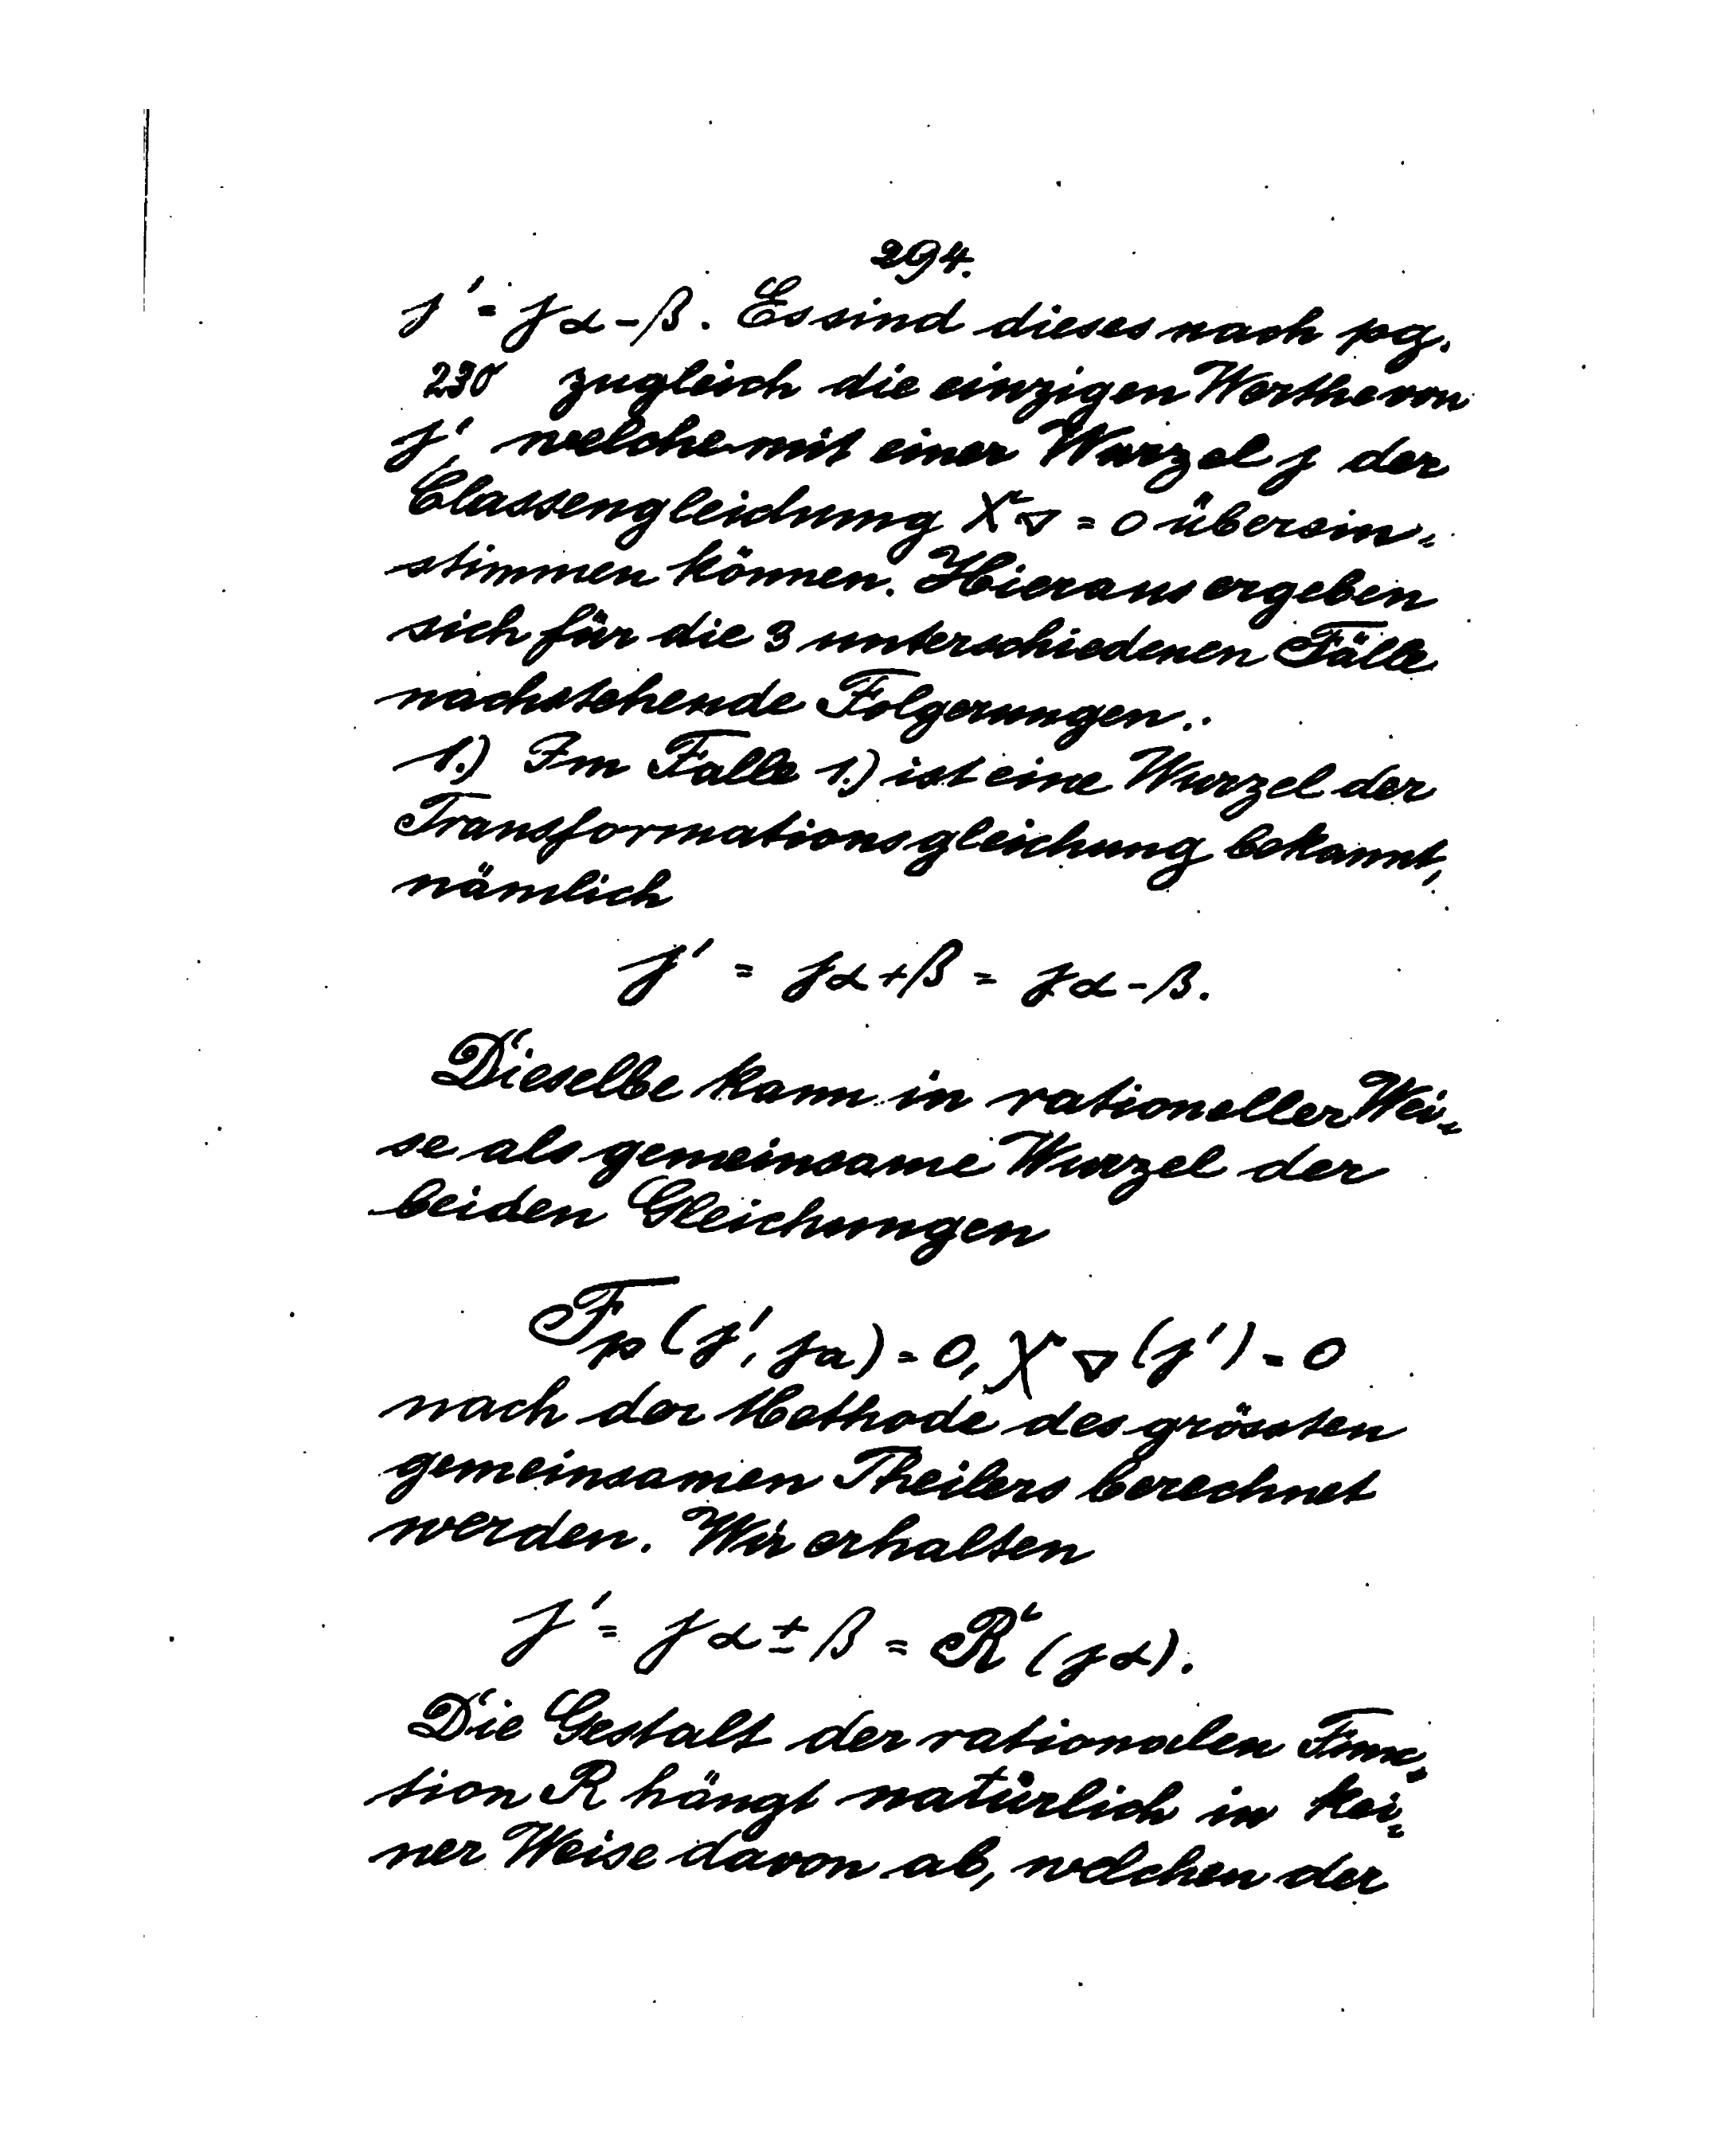 294.
j' = jα-β. Es sind dieses nach pg.
230 zugleich die einzigen Werthe von
j', welche mit einer Wurzel j der
Classengleichung X∇ = 0 überein=
stimmen können. Hieraus ergeben
sich für die 3 unterschiedenen Fälle
nachstehende Folgerungen.:
1.) Im Falle 1.) ist eine Wurzel der
Transformationsgleichung bekannt,
nämlich
j' = jα+β = jα-β.
Dieselbe kann in rationeller Wei=
se als gemeinsame Wurzel der
beiden Gleichungen
Fp (j', ja) = 0, X∇ (j') = 0
nach der Methode des grössten
gemeinsamen Theilers berechnet
werden. Wir erhalten
j' = jα±β = R (jα).
Die Gestalt der rationalen Func=
tion R hängt natürlich in kei=
ner Weise davon ab, welchen der